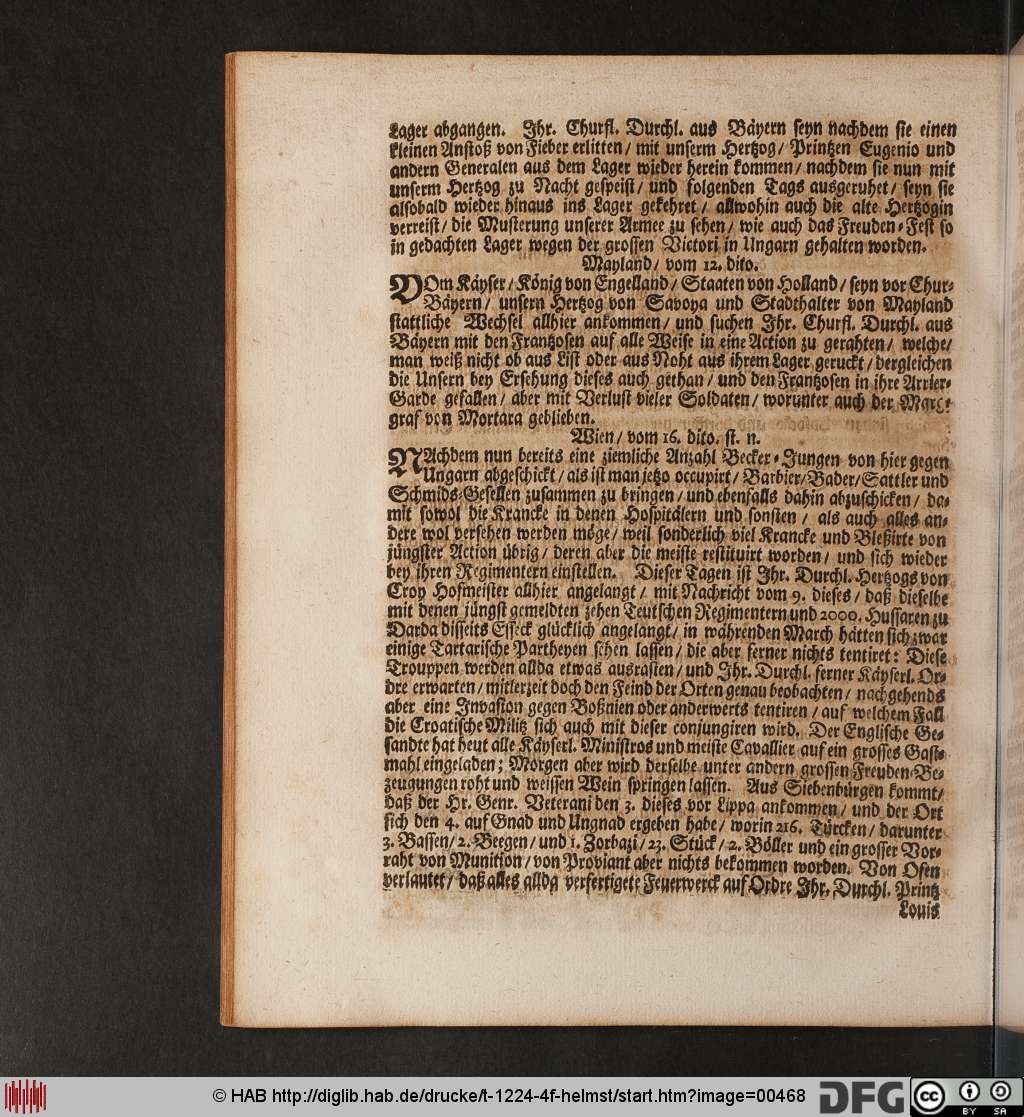 Lager abgangen. Ihr. Churfl. Durchl. aus Bäyern seyn nachdem sie einen
kleinen Anstoß von Fieber erlitten / mit unserm Hertzog / Printzen Eugenio und
andern Generalen aus dem Lager wieder herein kommen / nachdem sie nun mit
unserm Hertzog zu Nacht gespeist / und folgenden Tags ausgeruhet / seyn sie
alsobald wieder hinaus ins Lager gekehret / allwohin auch die alte Hertzogin
verreist / die Musterung unserer Armee zu sehen / wie auch das Freuden-Fest so
in gedachten Lager wegen der grossen Victori in Ungarn gehalten worden.
Mayland / vom 12. dito.
VOm Käyser / König von Engelland / Staaten von Holland / seyn vor Chur-
Bäyern / unsern Hertzog von Savoya und Stadthalter von Mayland
stattliche Wechsel allhier ankommen / und suchen Ihr. Churfl. Durchl. aus
Bäyern mit den Frantzosen auf alle Weise in eine Action zu gerahten / welche /
man weiß nicht ob aus List oder aus Noht aus ihrem Lager geruckt / dergleichen
die Unsern bey Ersehung dieses auch gethan / und den Frantzosen in ihre Arrier-
Garde gefallen / aber mit Verlust vieler Soldaten / worunter auch der Marg-
graf von Mortara geblieben.
Wien / vom 16. dito. st. n.
NAchdem nun bereits eine ziemliche Anzahl Becker-Jungen von hier gegen
Ungarn abgeschickt / als ist man jetzo occupirt / Barbier / Bader / Sattler und
Schmids-Gesellen zusammen zu bringen / und ebenfalls dahin abzuschicken / da-
mit sowol die Krancke in denen Hospitälern und sonsten / als auch alles an-
dere wol versehen werden möge / weil sonderlich viel Krancke und Bleßirte von
jüngster Action übrig / deren aber die meiste restituirt worden / und sich wieder
bey ihren Regimentern einstellen. Dieser Tagen ist Ihr. Durchl. Hertzogs von
Croy Hofmeister allhier angelangt / mit Nachricht vom 9. dieses / daß dieselbe
mit denen jüngst gemeldten zehen Teutschen Regimentern und 2000. Hussaren zu
Darda disseits Esseck glücklich angelangt / in währenden March hätten sich zwar
einige Tartarische Partheyen sehen lassen / die aber ferner nichts tentiret: Diese
Trouppen werden allda etwas ausrasten / und Ihr. Durchl. ferner Käyserl. Or-
dre erwarten / mitlerzeit doch den Feind der Orten genau beobachten / nachgehends
aber eine Invasion gegen Boßnien oder anderwerts tentiren / auf welchem Fall
die Croatische Militz sich auch mit dieser conjungiren wird. Der Englische Ge-
sandte hat heut alle Käyserl. Ministros und meiste Cavallier auf ein grosses Gast-
mahl eingeladen; Morgen aber wird derselbe unter andern grossen Freuden-Be-
zeugungen roht und weissen Wein springen lassen. Aus Siebenbürgen kommt /
daß der Hr. Genr. Veterani den 3. dieses vor Lippa ankommen / und der Ort
sich den 4. auf Gnad und Ungnad ergeben habe / worin 216. Türcken / darunter
3. Bassen / 2. Beegen / und 1. Zorbazi / 23. Stück / 2. Böller und ein grosser Vor-
raht von Munition / von Proviant aber nichts bekommen worden. Von Ofen
verlautet / daß alles allda verfertigete Feuerwerck auf Ordre Ihr. Durchl. Printz
Louis
© HAB http://diglib.hab.de/drucke/t-1224-4f-helmst/start.htm?image=00468
DFG
cc
BY SA